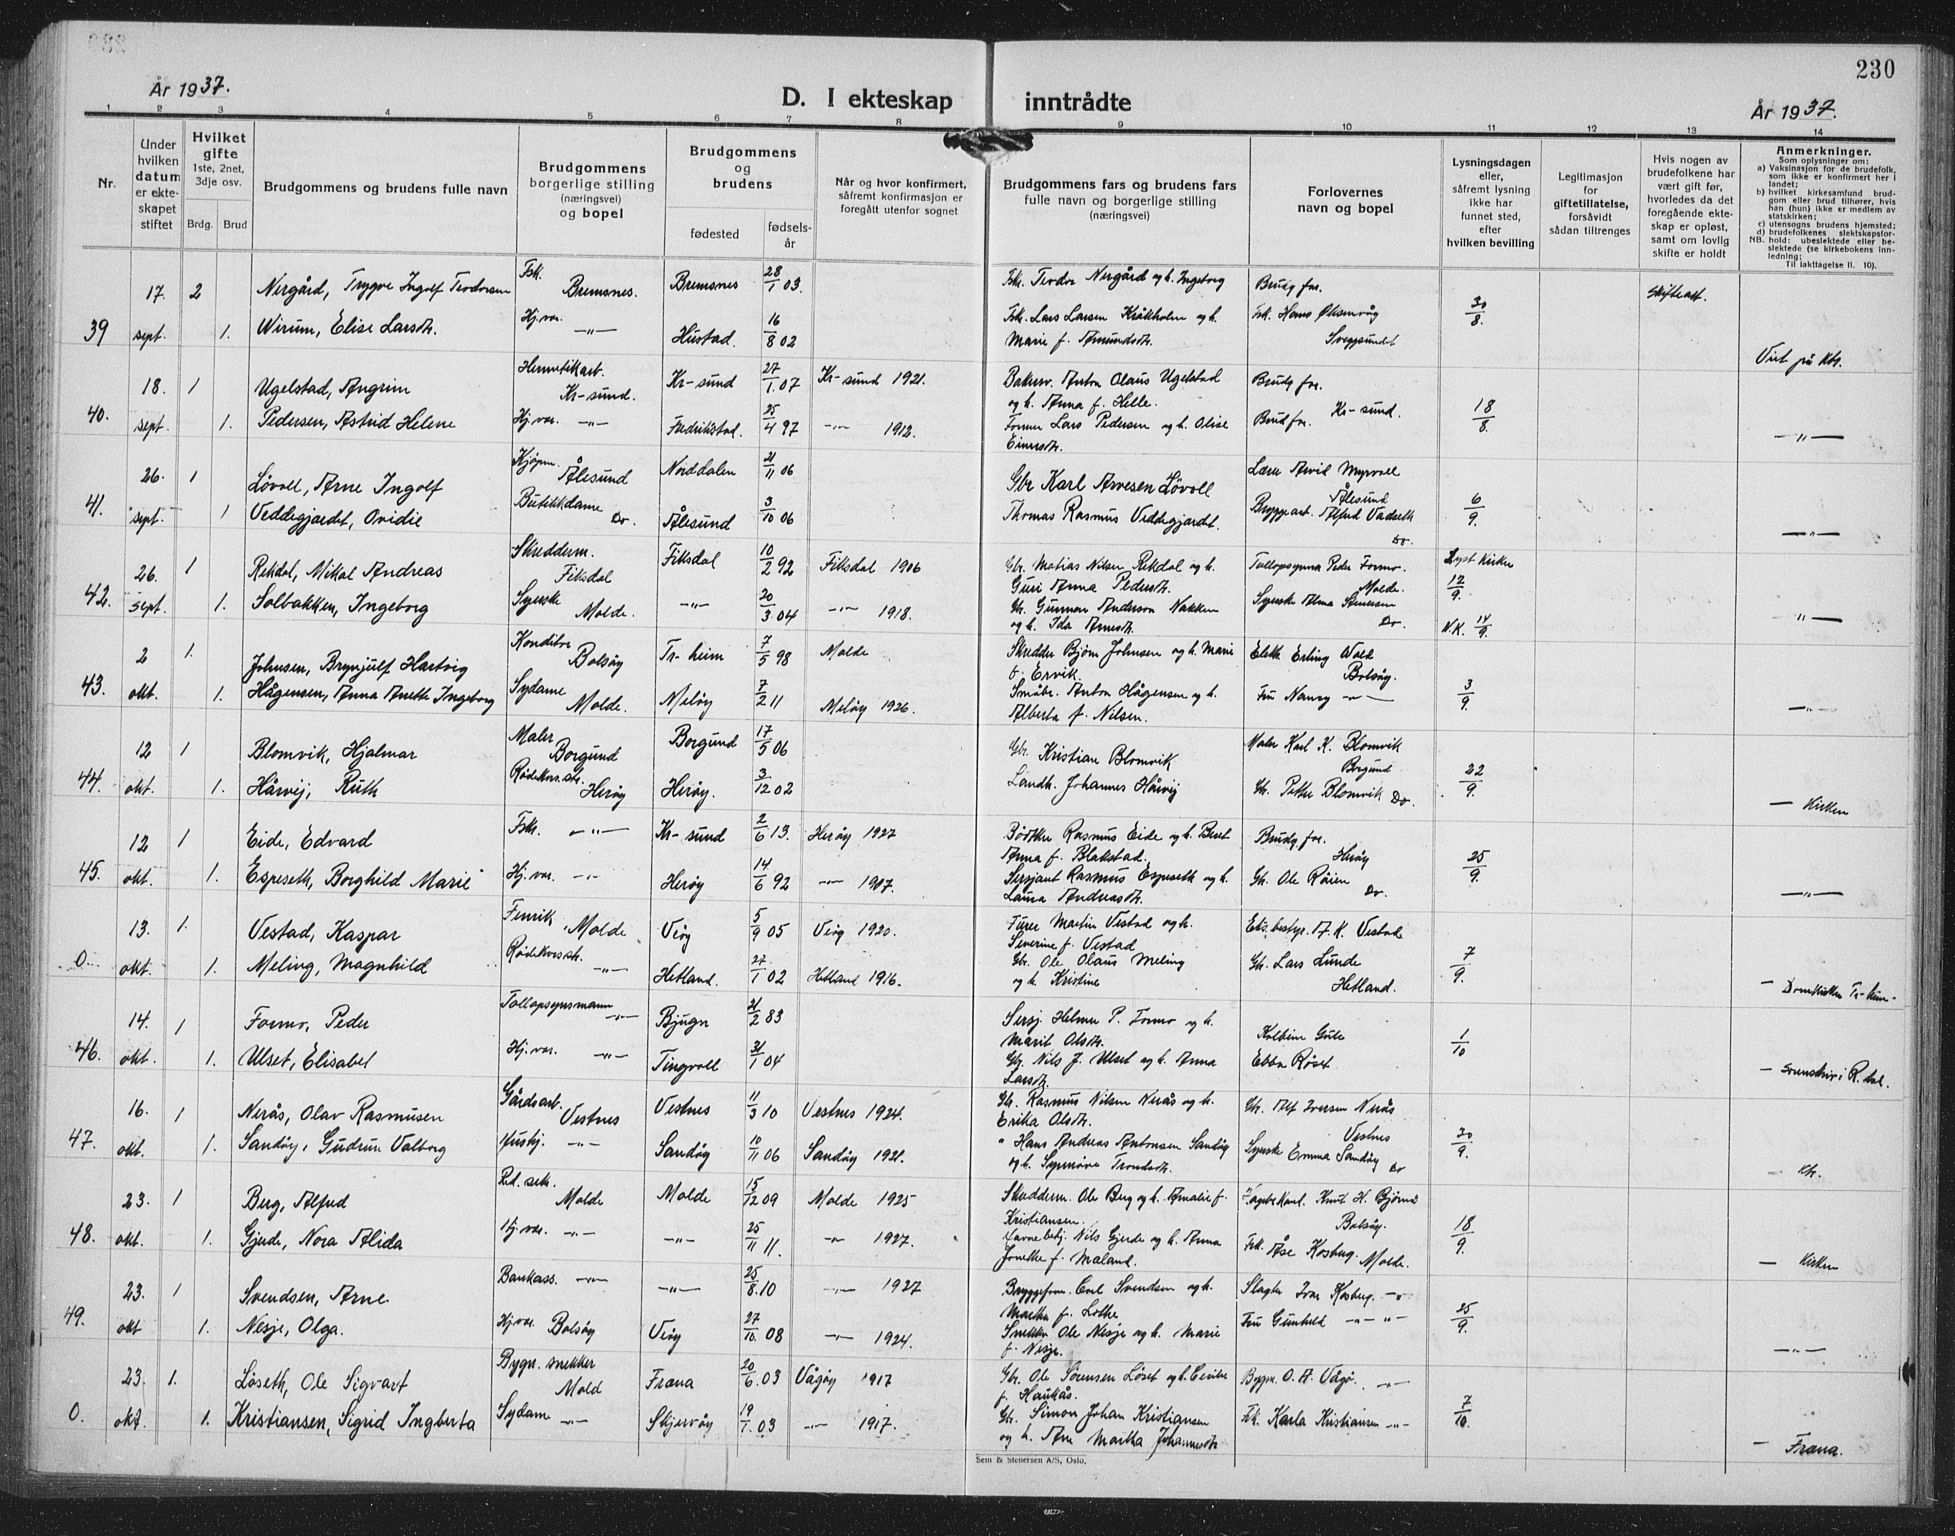 230
År 1937.
D. I ekteskap inntrådte
År 1937.
1 2 3 4 5 6 7 8 9 10 11 12 13 14
Nr.
Under hvilken datum er ekteskapet stiftet
Hvilket gifte 1ste, 2net, 3dje osv.
Brdg. Brud
Brudgommens og brudens fulle navn
Brudgommens borgerlige stilling (næringsvei) og bopel
Brudgommens og brudens
fødested
fødselsår
Når og hvor konfirmert, såfremt konfirmasjon er foregått utenfor sognet
Brudgommens fars og brudens fars fulle navn og borgerlige stilling (næringsvei)
Forlovernes navn og bopel
Lysningsdagen eller, såfremt lysning ikke har funnet sted, efter hvilken bevilling
Legitimasjon for giftetillatelse, forsåvidt sådan tiltrenges
Hvis nogen av brudefolkene har vært gift før, hvorledes da det foregående ekteskap er opløst, samt om lovlig skifte er holdt
Anmerkninger.
Som oplysninger om:
a) Vaksinasjon for de brudefolk, som ikke er konfirmert her i landet;
b) hvilket kirkesamfund brudgom eller brud tilhører, hvis han (hun) ikke er medlem av statskirken;
c) utensogns brudens hjemsted;
d) brudefolkenes slektskapsforhold: ubeslektede eller beslektede (se kirkebokens innledning;
NB. Til iakttagelse II. 10).
17. 2 Nergård, Trygve Ingolf Teodorsen Fsk. Bremsnes. Bremsnes 28/1 03. Fsk. Teodor Nergård og h. Ingeborg Brudg for. Skifteatt.
39 sept. 1. Wirum, Elise Larsdtr. Hj.vær. —„— Hustad. 16/8 02 Fsk. Lars Larsen Kråkholm og h. Marie f. Amundsdtr. Fsk. Hans 30/8. Viet på ktr.
18. 1 Ugelstad, Angrim Hermetikarb. Kr-sund. Kr-sund 27/1.07 Kr-sund 1921. Anton Olaus Ugelstad og h. Anna f. Helle. Brudg for.
40. sept. 1. Pedersen, Astrid Helene Hj.vær. —„— Fredrikstad. 25/4 97 —„— 1912. Former Lars Pedersen og h. Olise Einersdtr. Brud for. Kr-sund. 18/8. —„—
26. 1 Løvoll, Arne Ingolf Kjøpm. Ålesund Norddalen 21/11 06 Gbr Karl Arvesen Løvoll Lærer Arvid Myrvoll Ålesund
41. sept. 1 Veddegjerdet, Ovidie Butikkdame Do. Ålesund 3/10 06 Thomas Rasmus Veddegjerdet. Bryggearb. Alfred Vadseth Do. 6/9. —„—
26. 1 Rekdal, Mikal Andreas Skredderm. Fiksdal Fiksdal 10/2 92 Fiksdal 1906 Gbr. Matias Nilsen Rekdal og h. Guri Anna Pedersdtr. Tollopsynsm. Peder Formo. Molde. Lyst Kirken 12/9.
42. sept. 1. Solbakken, Ingeborg Syerske Molde. —„— 20/3.04 —„— 1918. Gbr. Gunnar Anderson Nakken og h. Ida Arnesdtr. Syerske Alma Stenersen Do. V.K. 14/9. —„—
2 1. Johnsen, Brynjulf Hartvig Konditor Bolsøy Tr-heim 7/5 98 Molde Skredder Bjørn Johnsen og h. Marie f. Ervik. Elektr. Erling Wold Bolsøy.
43. okt. 1. Hågensen, Anna Anette Ingeborg Sydame Molde. Meløy 7/2 11 Meløy 1926. Småbr. Anton Hågensen og h. Alberta f. Nilsen. Fru Nancy —„— 3/9. —„—
12 1 Blomvik, Hjalmar Maler Borgund Borgund 17/5 06 Gbr. Kristian Blomvik Maler Karl K. Blomvik Borgund
44. okt. 1. Hårvij, Ruth Rødekors.str. Herøy Herøy. 3/12 02 Landh. Johannes Hårvij Gbr. Petter Blomvik Do. 22/9. — Kirken
12 1 Eide, Edvard Fsk. —„— Kr-sund 2/6 13. Herøy 1927 Bødker Rasmus Eide og h. Beret Anna f. Blakstad. Brudg. for. Herøy
45. okt. 1. Espeseth, Borghild Marie Hj.vær. —„— Herøy 14/6 92 —„— 1907. Sersjant Rasmus Espeseth og h. Laura Andreasdtr. Gbr. Ole Røien Do 25/9. —„—
13. 1. Vestad, Kaspar Fenrik Molde Veøy 5/9 05 Veøy 1920. Furer Martin Vestad og h. Severine f. Vestad Eks.bestyr. A. K. Vestad
0. okt. 1. Meling, Magnhild Rødekors.str. —„— Hetland. 27/1 02 Hetland 1916. Gbr. Ole Olaus Meling og h. Kristine Gbr. Lars Lunde Hetland. 7/9. — Domkirken Tr-heim-
14. 1 Formo, Peder Tollopsynsmann —„— Bjugn 21/2 83 Sersj. Helmer P. Formo og h. Marit Olsdtr. Kolbein Gule
46. okt. 1. Ulset, Elisabet Hj.vær. —„— Tingvoll 31/1 04 Gbr. Nils J. Ulset og h. Anna Larsdtr. Ebba Røset 1/10 — R.dal.
16. 1 Nerås, Olav Rasmusen Gårdsarb. Vestnes Vestnes 11/3 10 Vestnes 1924. Gbr. Rasmus Nilsen Nerås og h. Erika Olsdtr. Gbr. Alf Iversen Nerås Vestnes
47. okt. 1. Sandøy, Gudrun Valborg Hushj. —„— Sandøy 10/11 06 Sandøy 1921. „ Hans Andreas Antonsen Sandøy og h. Synnøve Trondsdtr. Syerske Emma Sandøy Do 30/9. — ktr.
23. 1 Berg, Alfred Red. sekr. Molde Molde 15/12 09 Molde 1925 Skredderm. Ole Berg og h. Amalie f. Kristiansen. Knut H. Bjørnå Bolsøy.
48. okt. 1. Gjerde, Nora Alida Hj.vær. —„— —„— 25/11 11. —„— 1927. Nils Gjerde og h. Anna Jonette f. Maland. Frk. Åse Kosberg. Molde. 18/9. — Kirken
23. 1 Svendsen, Arne Bankass. —„— —„— 25/8.10 —„— 1927 Bryggeform. Carl Svendsen og h. Martha f. Lothe Slagter Ivar Kosberg. —„
49. okt 1. Nesje, Olga. Hj.vær. Bolsøy Veøy 27/10. 08 —„— 1924. Snekker Ole Nesje og h. Marie f. Nesje. Fru Gunhild —„— —„— 25/9. —„—
23. 1. Løseth, Ole Sigvart Bygn. snekker Mold Fræna 20/6.03 Vågøy 1917 Gbr. Ole Sørensen Løset og h. f. Haukås. Bygm. O. A. Vågø. —„—
0. okt. 1. Kristiansen, Sigrid Ingberta Sydame —„— Skjervøy 19/1.03 —„— 1917. Gbr. Simon Johan Kristiansen og h. Martha Johannesdtr Frk. Karla Kristiansen —„— 7/10. — Fræna.
Sem & Stenersen A/S, Oslo.